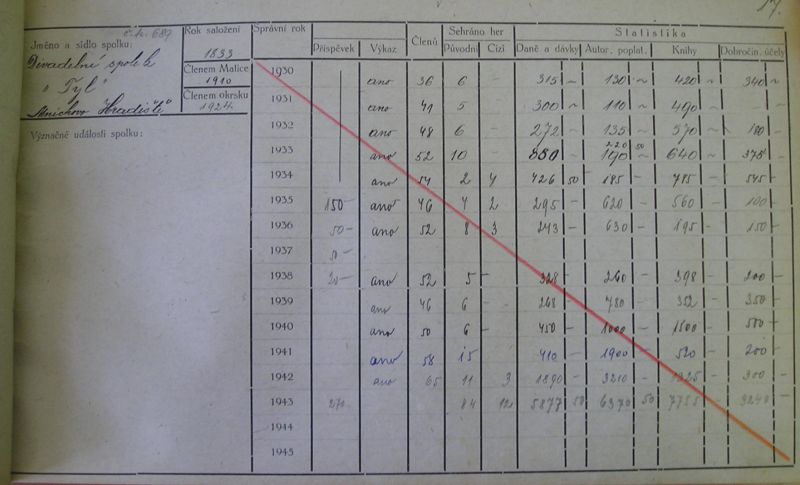 17.
č.h. 687
Jméno a sídlo spolku:
Divadelní spolek
„Tyl“
Mnichovo Hradiště
Význačné události spolku:
Rok založení
1833
Členem Matice
1910
Členem okrsku
1924
Správní rok Příspěvek Výkaz Členů Sehráno her Původní Cizí Statistika Daně a dávky Autor. poplat. Knihy Dobročin. účely
1930 ano 36 6 315 130 420 340
1931 ano 41 5 300 110 490
1932 ano 48 6 272 135 570 180
1933 ano 52 10 550 220 50 190 640 375
1934 ano 54 2 4 426 50 185 785 545
1935 150 ano 46 4 2 295 620 560 100
1936 50 ano 52 8 3 243 630 195 150
1937 50
1938 20 ano 52 5 328 260 398 200
1939 ano 46 6 268 780 352 350
1940 ano 50 6 450 1000 1500 500
1941 ano 58 15 410 1900 520 200
1942 ano 65 11 3 1890 3210 1325 300
1943 270 84 12 5877 50 6370 50 7755 3240
1944
1945